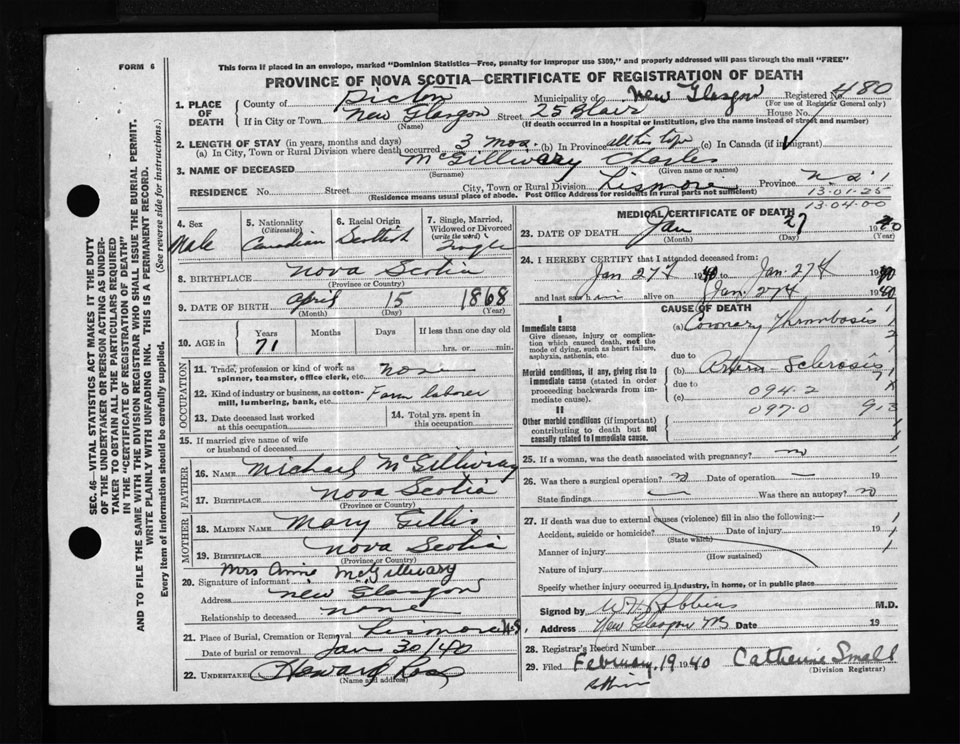 FORM 6
This form if placed in an envelope, marked "Dominion Statistics—Free, penalty for improper use $300," and properly addressed will pass through the mail "FREE"
PROVINCE OF NOVA SCOTIA—CERTIFICATE OF REGISTRATION OF DEATH
Registered No. 480
(For use of Registrar General only)
1. PLACE OF DEATH County of Pictou Municipality of New Glasgow
If in City or Town New Glasgow Street 25 Blair House No.
(Name) (If death occurred in a hospital or institution, give the name instead of street and number)
2. LENGTH OF STAY (in years, months and days)
(a) In City, Town or Rural Division where death occurred 3 mos. (b) In Province all his life (c) In Canada (if immigrant)
3. NAME OF DECEASED McGillivary Charles
(Surname) (Given name or names)
RESIDENCE No. Street City, Town or Rural Division Lismore Province N.S.
(Residence means usual place of abode. Post Office Address for residents in rural parts not sufficient)
13-01-25
13-04-00
4. Sex Male
5. Nationality (Citizenship) Canadian
6. Racial Origin Scottish
7. Single, Married, Widowed or Divorced (write the word) Single
8. BIRTHPLACE Nova Scotia
(Province or Country)
9. DATE OF BIRTH April 15 1868
(Month) (Day) (Year)
10. AGE in Years Months Days If less than one day old
71 hrs. or min.
OCCUPATION
11. Trade, profession or kind of work as spinner, teamster, office clerk, etc. none
12. Kind of industry or business, as cotton-mill, lumbering, bank, etc. Farm laborer
13. Date deceased last worked at this occupation
14. Total yrs. spent in this occupation
15. If married give name of wife or husband of deceased
FATHER
16. NAME Michael McGillivray
17. BIRTHPLACE Nova Scotia
(Province or Country)
MOTHER
18. MAIDEN NAME Mary Gillis
19. BIRTHPLACE Nova Scotia
(Province or Country)
20. Signature of informant Mrs Annie McGillivary
Address New Glasgow
Relationship to deceased none
21. Place of Burial, Cremation or Removal Lismore N.S.
Date of burial or removal Jan 30/40
22. UNDERTAKER Howard Ross
(Name and address)
MEDICAL CERTIFICATE OF DEATH
23. DATE OF DEATH Jan 27 1940
(Month) (Day) (Year)
24. I HEREBY CERTIFY that I attended deceased from:
Jan 27th 1940 to Jan 27th 1940
and last saw him alive on Jan 27th 1940
CAUSE OF DEATH
I
Immediate cause
Give disease, injury or complication which caused death, not the mode of dying, such as heart failure, asphyxia, asthenia, etc.
(a) Coronary Thrombosis
due to
Morbid conditions, if any, giving rise to immediate cause (stated in order proceeding backwards from immediate cause).
(b) Arterio-Sclerosis
due to
(c) 094.2
097.0
II
Other morbid conditions (if important) contributing to death but not causally related to immediate cause.
25. If a woman, was the death associated with pregnancy? no
26. Was there a surgical operation? no Date of operation 19
State findings Was there an autopsy? no
27. If death was due to external causes (violence) fill in also the following:—
Accident, suicide or homicide? Date of injury 19
(State which)
Manner of injury
(How sustained)
Nature of injury
Specify whether injury occurred in industry, in home, or in public place
Signed by M.D.
Address New Glasgow NS Date 19
28. Registrar's Record Number
29. Filed February 19 1940 Catherine Small
(Division Registrar)
SEC. 46—VITAL STATISTICS ACT MAKES IT THE DUTY
OF THE UNDERTAKER OR PERSON ACTING AS UNDER-
TAKER TO OBTAIN ALL THE PARTICULARS REQUIRED
IN THE "CERTIFICATE OF REGISTRATION OF DEATH"
AND TO FILE THE SAME WITH THE DIVISION REGISTRAR WHO SHALL ISSUE THE BURIAL PERMIT.
WRITE PLAINLY WITH UNFADING INK. THIS IS A PERMANENT RECORD.
Every item of information should be carefully supplied. (See reverse side for instructions.)